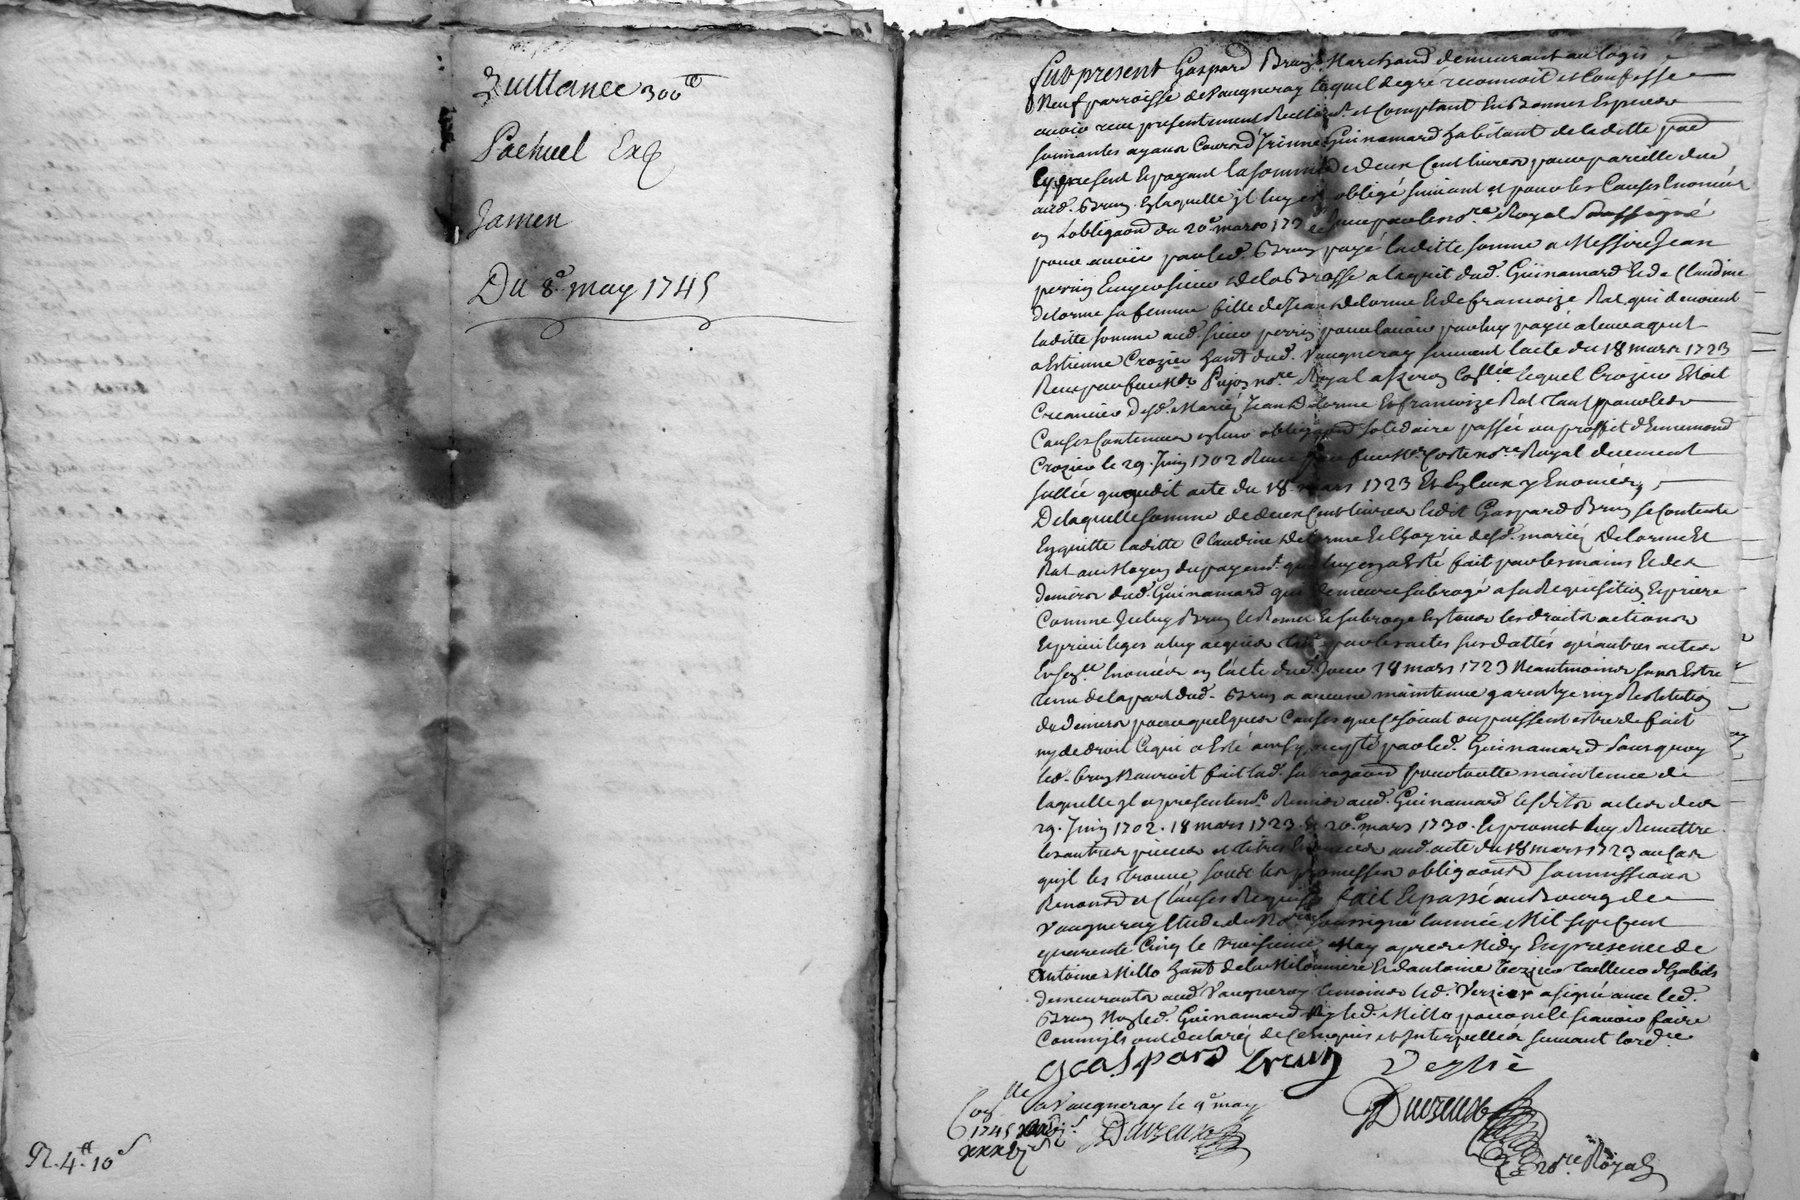 Quittance 300ᵗᵗ
Pachuel Exp
Jamen
Du 8.e may 1745
R. 4ᵗᵗ 10ˢ
fut present Gaspard Brun Marchand demeurant au logis
Neuf parroisse de Vaugneray lequel de gré reconnoit et Confesse
avoir receu presentement Reellem.t et Comptant En Bonnes Especes
sonnantes ayant Cours d' Guinamard habitant de laditte par.
Cy present Et payant la somme de deux Cent livres pour pareille due
aud. Brun Et laquelle jl luy est obligé suivant et pour les Causes Enoncées
en l'obligaond du 20.e mars 173 receue par le no.re Royal Soussigné
pour avoir par led. Brun payé laditte somme a Messire Jean
perrin Ecuyer sieur de la Brosse a l'aquit dud. Guinamard Et de Claudine
delorme sa femme fille de Jean delorme Et de francoize Rat qui devoient
laditte somme aud. sieur perrin pour l'avoir par luy payée a leur aquit
a Estienne Crozier hant dud. Vaugneray suivant l'acte du 18 mars 1723
Receu par feu Me no.re Royal lequel Crozier Estoit
Creancier desd. Mariés Jean Delorme Et francoize Rat Tant pour les
Causes Contenues en leur obligaond solidaire passée au proffit d'Ennemond
Crozier le 29. Juin 1702 Receu par feu Me. Coste no.re Royal duement
sellée quaudit acte du 18 mars 1723 Et Enoncées,
De laquelle somme de deux Cent livres ledit Gaspard Brun se Contente
En quitte laditte Claudine Delorme Et l'hoyrie desd. mariés Delorme Et
Rat au Moyen du payem.t que luy en a Esté fait par les mains Et des
deniers dud. Guinamard qui demeure subrogé a sa Requisition Et priere
Comme Jceluy Brun le Et subroge En tous les droits actions
Et privileges a luy acquis par les actes susdattés qu'autres actes
Enoncés en l'acte dud. Jour 18 mars 1723 Neantmoins sans Estre
tenu de la part dud. Brun a aucune maintenue garentye ny Restitution
de deniers pour quelques Causes que Ce soient ou puissent estre de fait
ny de droit Ce qui a Esté ainsy accepté par led. Guinamard Sans quoy
led. brun N'auroit fait lad. subrogaond pour toutte maintenue de
laquelle jl a presentem.t Remis aud. Guinamard lesdits actes des
29. Juin 1702. 18 mars 1723. & 20.e mars 1730. Et promet luy Remettre
les autres pieces et titres Enoncés aud. acte du 18 mars 1723 au Cas
qu'jl les trouve sous les promesses obligaonds soumissions
Renond.s Et Clauses Requises fait Et passé au Bourg de
Vaugneray Etude du No.re soussigné l'année Mil sept Cent
quarente Cinq le troisieme May apres Midy En presence de
Antoine Millo hant de la Milonniere Et d'antoine Verzier Tailleur d'habits
demeurants aud. Vaugneray temoins led. Verzier a signé avec led.
Brun Non led. Guinamard Ny led. Millo pour ne le scavoir faire
Comm'jls ont declaré de Ce Enquis et Interpellés suivant l'ord.re
gcaspard brun
Con.lle a Vaugneray le 9.e may
1745
Duvzeux
Duvzeux
no.re Royal